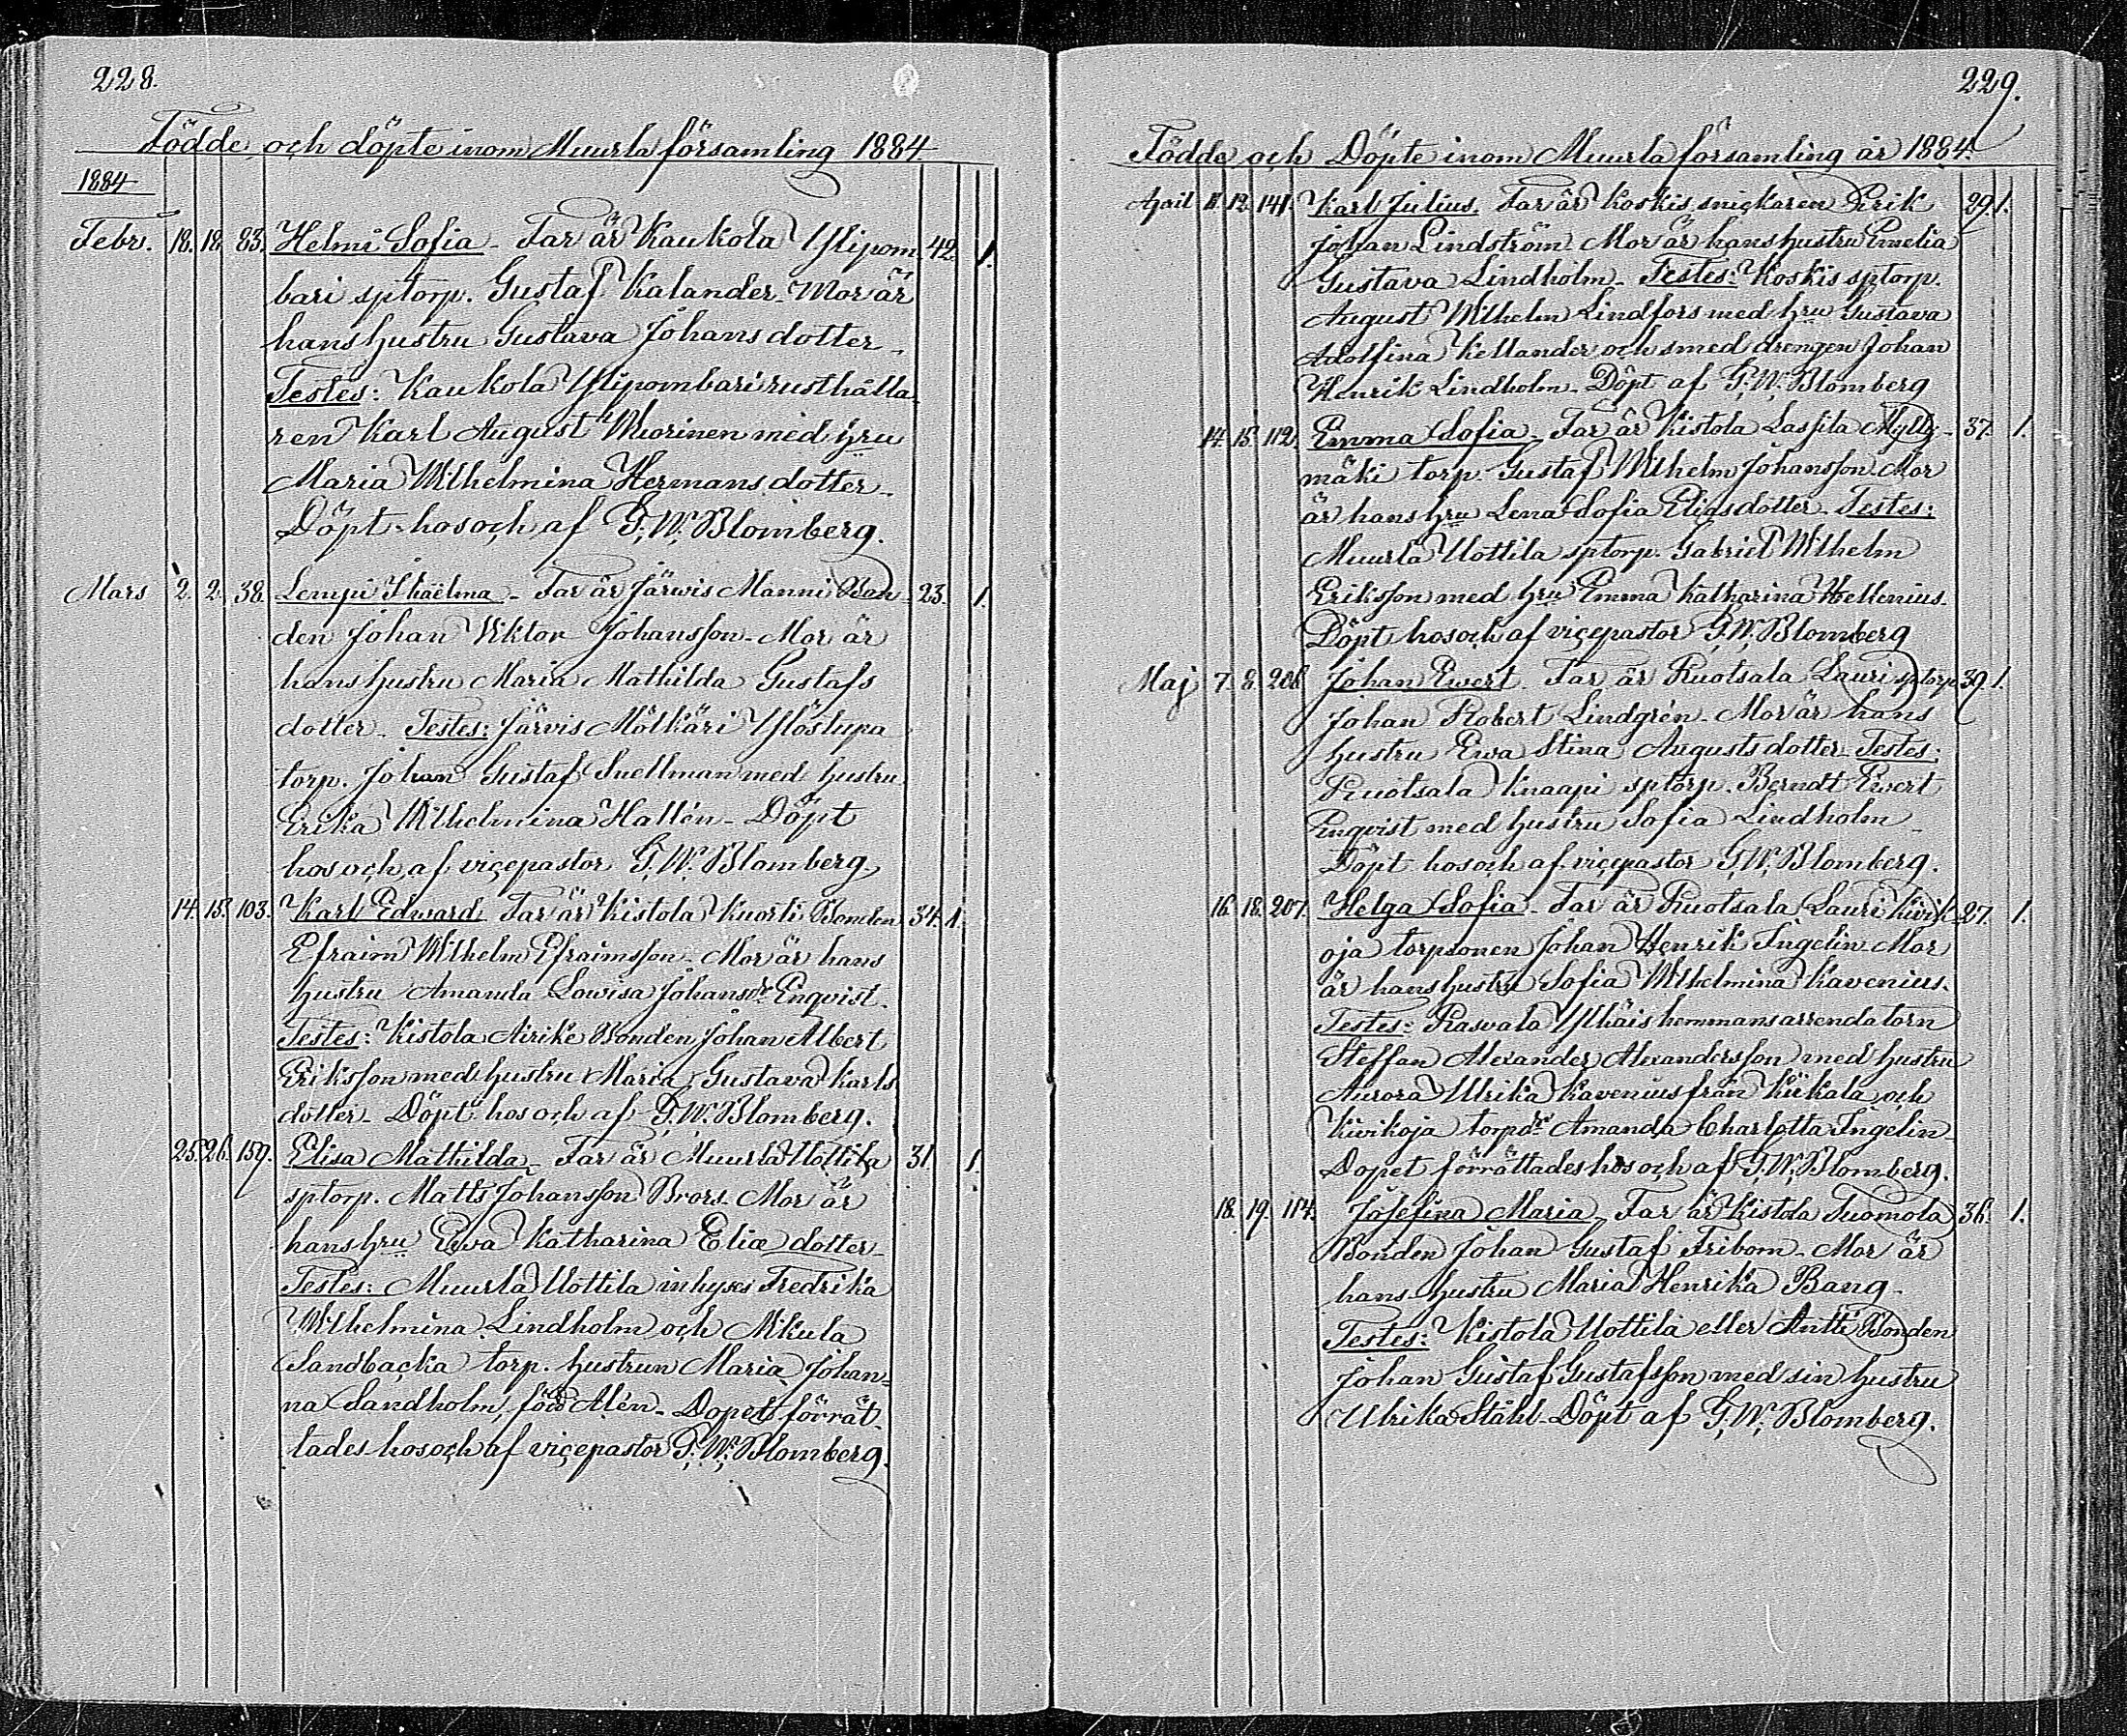 228.
Födde och döpte inom Muurla församling 1884.
1884
Febr. 18. 18. 83. Helmi Sofia - Far är Kaukola Ylipom- 42. 1.
bari sptorp. Gustaf Kalander - Mor är
hans hustru Gustava Johans dotter -
Testes: Kaukola Ylipombari rusthålla-
ren Karl August Wuorinen med hru
Maria Wilhelmina Hermans dotter -
Döpt hos och af G. W. Blomberg.
Mars 2. 2. 38. Lempi - Far är Järwis Manni Bon- 23. 1.
den Johan Viktor Johansson - Mor är
hans hustru Maria Mathilda Gustafs
dotter - Testes: Järvis Mölkäri Ylöstupa
torp. Johan Gustaf Snellman med hustru
Erika Wilhelmina Hallén - Döpt
hos och af vicepastor G. W. Blomberg.
14. 15. 103. Karl Edward. Far är Kistola Kuorli Bonden 34. 1.
Efraim Wilhelm Efraimsson - Mor är hans
hustru Amanda Lowisa Johansdr Enqvist.
Testes: Kistola Airike Bonden Johan Albert
Eriksson med hustru Maria Gustava Karls
dotter - Döpt hos och af G. W. Blomberg.
25. 26. 159. Elisa Mathilda - Far är Muurla Uottila 31. 1.
sptorp. Matts Johansson Brors. Mor är
hans hru Ewa Katharina Eliæ dotter -
Testes: Muurla Uottila inhyses Fredrika
Wilhelmina Lindholm och Mikula
Sandbacka torp. hustrun Maria Johan-
na Sandholm, född Alén - Dopet förrät-
tades hos och af vicepastor G. W. Blomberg.
229.
Födde och Döpte inom Muurla församling år 1884.
April 11. 12. 141. Karl Julius. Far är Koskis snickaren Erik 29. 1.
Johan Lindström Mor är hans hustru Emelia
Gustava Lindholm - Testes: Koskis sptorp.
August Wilhelm Lindfors med hru Gustava
Adolfina Kellander och smed drengen Johan
Henrik Lindholm - Döpt af G. W. Blomberg
14. 15. 112. Emma Sofia - Far är Kistola Lassila Mylly- 37. 1.
mäki torp. Gustaf Wilhelm Johansson. Mor
är hans hru Lena Sofia Eliasdotter - Testes:
Muurla Uottila sptorp. Gabriel Wilhelm
Eriksson med hru Emma Katharina Hellenius.
Döpt hos och af vicepastor G. W. Blomberg
Maj 7. 8. 208. Johan Ewert. Far är Ruotsala Lauri sptorp 39. 1.
Johan Robert Lindgrén - Mor är hans
hustru Ewa Stina Augusts dotter - Testes:
Ruotsala Knaapi sptorp. Berndt Ewert
Enqvist med hustru Sofia Lindholm -
Döpt hos och af vicepastor G. W. Blomberg.
16. 18. 207. Helga Sofia - Far är Ruotsala Lauri Kivik- 27. 1.
oja torpsonen Johan Henrik Ingelin Mor
är hans hustru Sofia Wilhelmina Kavenius.
Testes: Rasvala Ylhäis hemmansarrendatorn
Steffan Alexander Alexandersson med hustru
Aurora Ulrika Kavenius från Kiikala och
Kivikoja torpdr Amanda Charlotta Ingelin -
Dopet förrättades hos och af G. W. Blomberg.
18. 19. 114. Josefina Maria - Far är Kistola Tuomola 36. 1.
Bonden Johan Gustaf Fribom - Mor är
hans hustru Maria Henrika Bang -
Testes: Kistola Uottila eller Antti Bonden
Johan Gustaf Gustafsson med sin hustru
Ulrika Ståhl - Döpt af G. W. Blomberg.